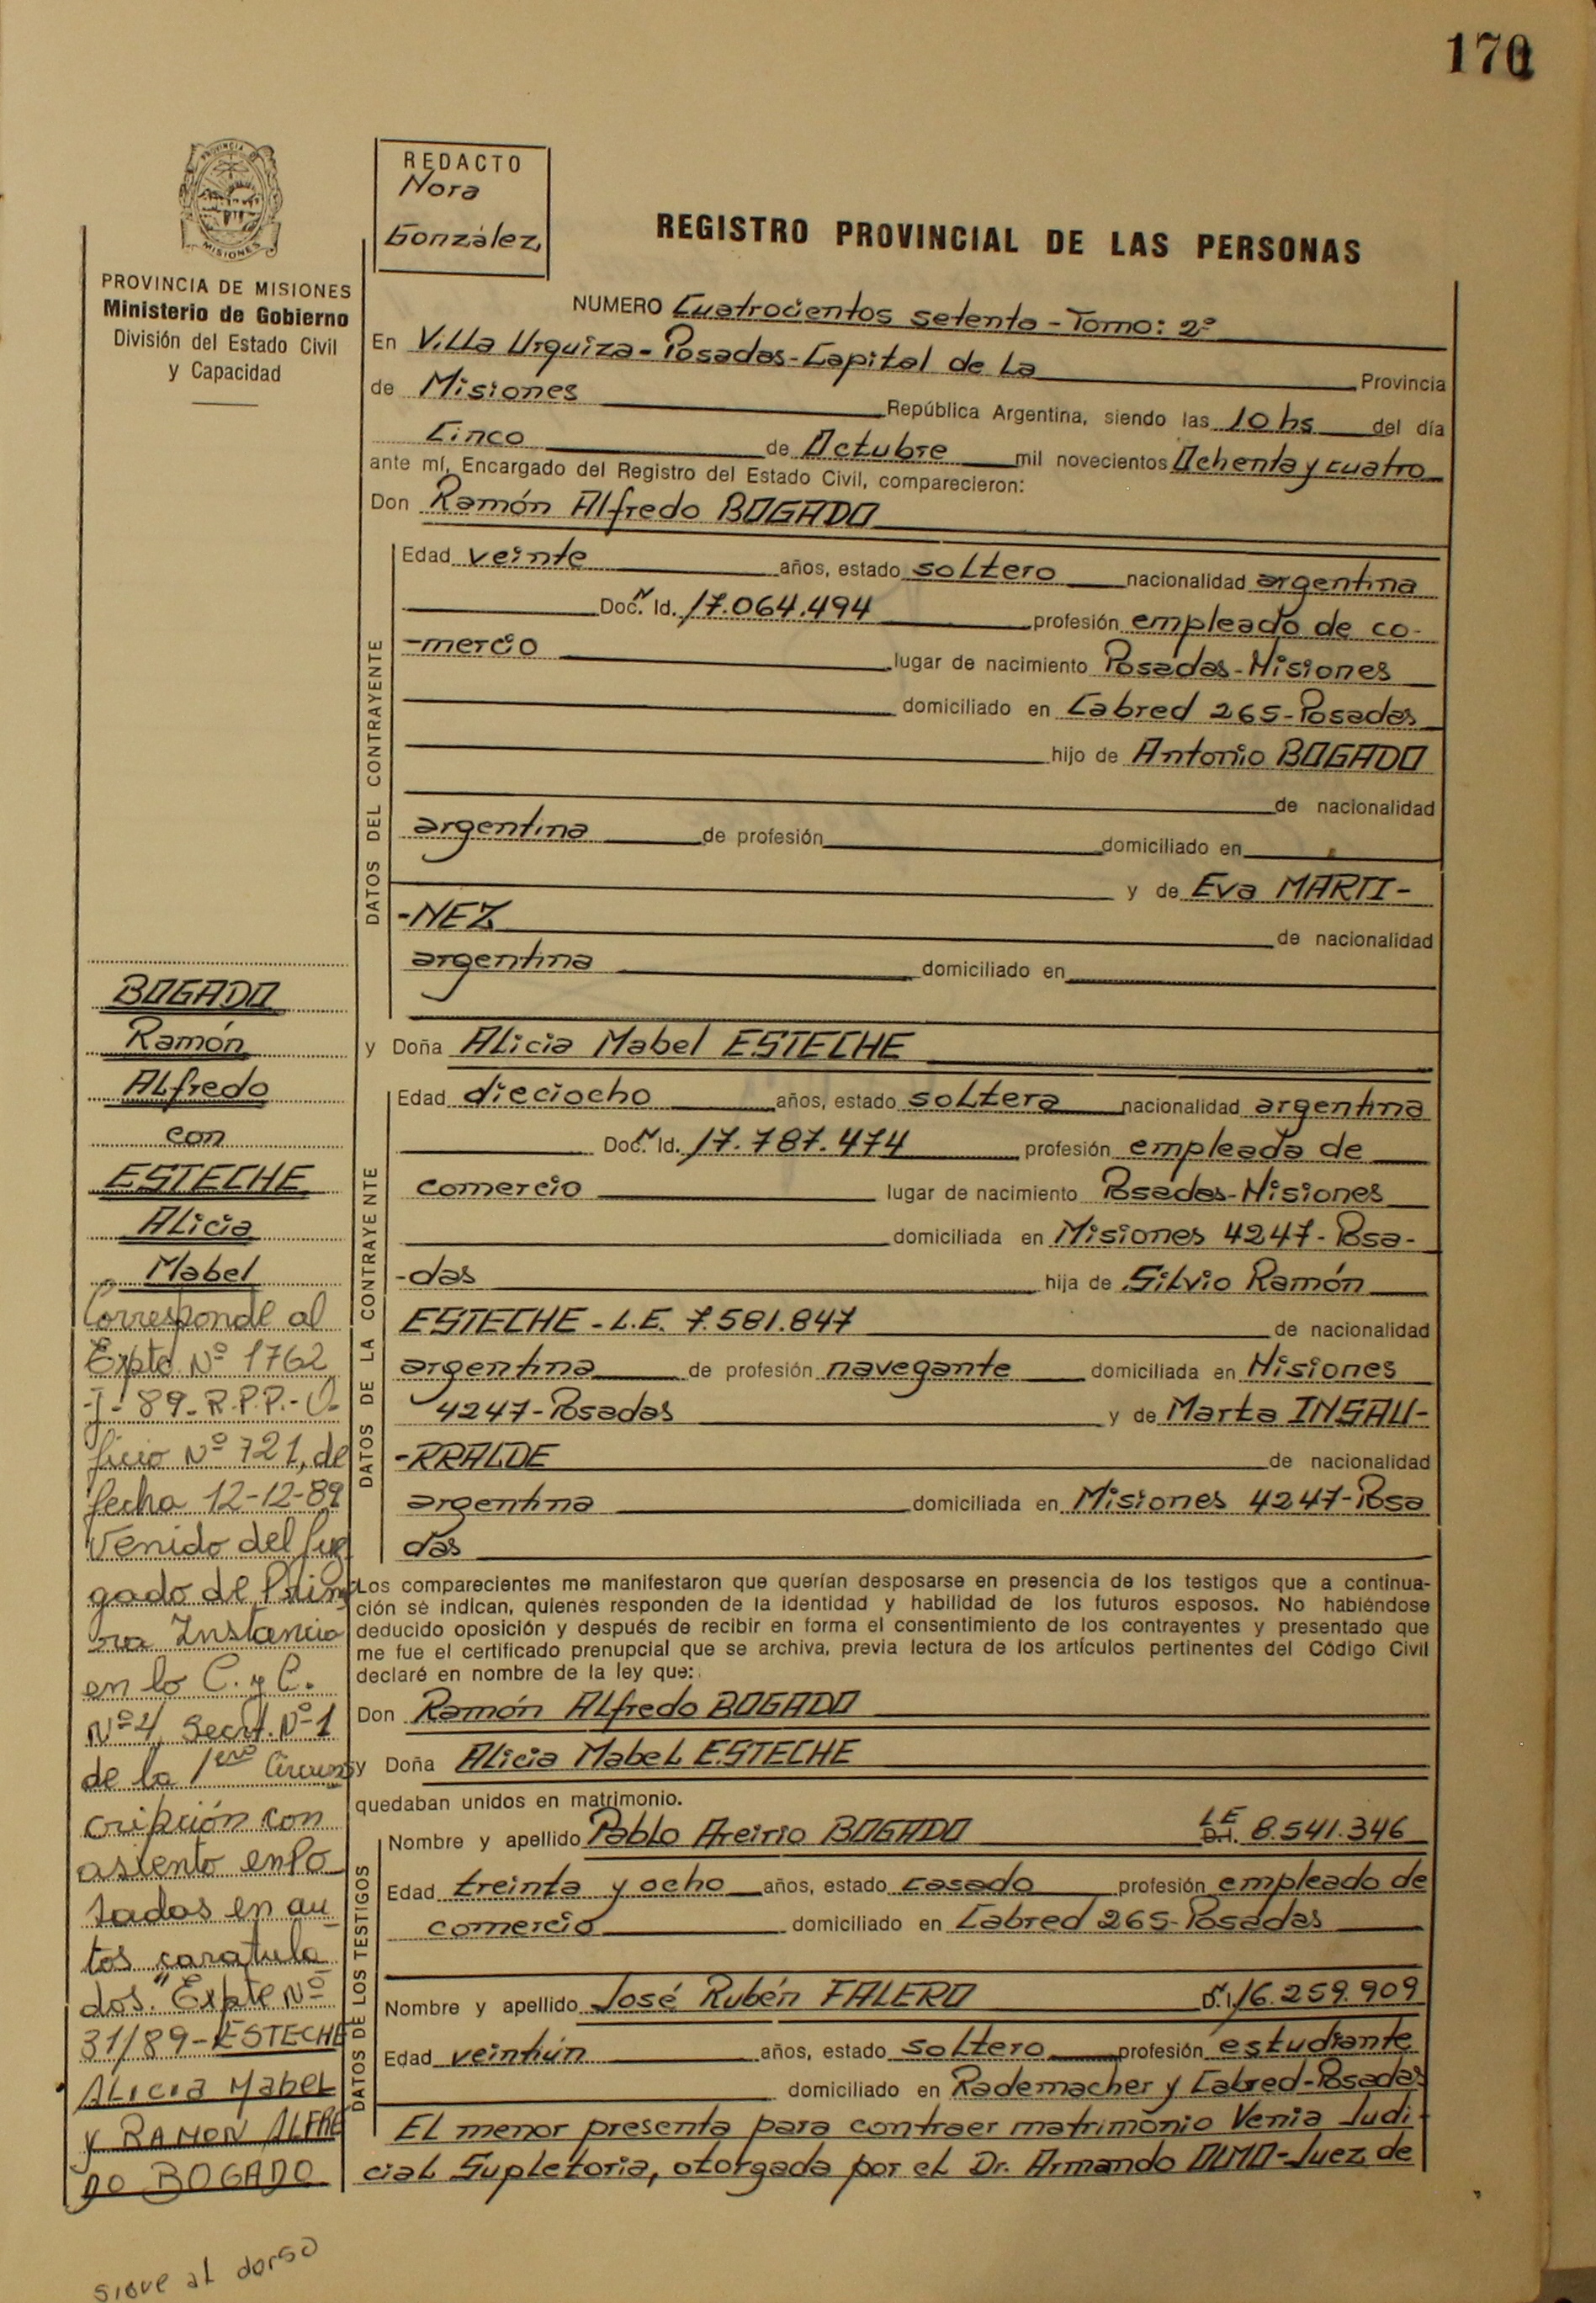 170
PROVINCIA DE
MISIONES
PROVINCIA DE MISIONES
Ministerio de Gobierno
División del Estado Civil
y Capacidad
REDACTO
Nora
González
REGISTRO PROVINCIAL DE LAS PERSONAS
NUMERO Cuatrocientos setenta - Tomo: 2º
En Villa Urquiza - Posadas - Capital de La Provincia
de Misiones República Argentina, siendo las 10 hs del día
Cinco de Octubre mil novecientos Ochenta y cuatro
ante mí, Encargado del Registro del Estado Civil, comparecieron:
Don Ramón Alfredo BOGADO
DATOS DEL CONTRAYENTE
Edad veinte años, estado soltero nacionalidad argentina
Doc. N Id. 17.064.494 profesión empleado de co-
-mercio lugar de nacimiento Posadas - Misiones
domiciliado en Cabred 265 - Posadas
hijo de Antonio BOGADO
de nacionalidad
argentina de profesión domiciliado en
y de Eva MARTI-
-NEZ de nacionalidad
argentina domiciliado en
y Doña Alicia Mabel ESTECHE
DATOS DE LA CONTRAYENTE
Edad dieciocho años, estado soltera nacionalidad argentina
Doc. N Id. 17.787.474 profesión empleada de
comercio lugar de nacimiento Posadas - Misiones
domiciliada en Misiones 4247 - Posa-
-das hija de Silvio Ramón
ESTECHE - L.E. 7.581.847 de nacionalidad
argentina de profesión navegante domiciliada en Misiones
4247 - Posadas y de Marta INSAU-
-RRALDE de nacionalidad
argentina domiciliada en Misiones 4247 - Posa
das
Los comparecientes me manifestaron que querían desposarse en presencia de los testigos que a continua-
ción se indican, quienes responden de la identidad y habilidad de los futuros esposos. No habiéndose
deducido oposición y después de recibir en forma el consentimiento de los contrayentes y presentado que
me fue el certificado prenupcial que se archiva, previa lectura de los artículos pertinentes del Código Civil
declaré en nombre de la ley que:
Don Ramón Alfredo BOGADO
y Doña Alicia Mabel ESTECHE
quedaban unidos en matrimonio.
DATOS DE LOS TESTIGOS
Nombre y apellido Pablo Areirio BOGADO LE D.I. 8.541.346
Edad treinta y ocho años, estado casado profesión empleado de
comercio domiciliado en Cabred 265 - Posadas
Nombre y apellido José Rubén FALERO D.N.I. 16.259.909
Edad veintiún años, estado soltero profesión estudiante
domiciliado en Rademacher y Cabred - Posadas
El menor presenta para contraer matrimonio Venia Judi-
cial Supletoria, otorgada por el Dr. Armando OLMO - Juez de
BOGADO
Ramón
Alfredo
con
ESTECHE
Alicia
Mabel
Corresponde al
Expte. Nº 1762
-J- 89 - R.P.P. - O-
ficio Nº 721, de
fecha 12-12-89
Venido del Juz
gado de Prime
ra Instancia
en lo C. y C.
Nº 4, Secrt. Nº 1
de la 1era Circuns
cripción con
asiento en Po
sadas en au
tos caratula
dos: "Expte Nº
31/89 - ESTECHE
Alicia Mabel
y RAMON ALFRE
DO BOGADO
sigue al dorso